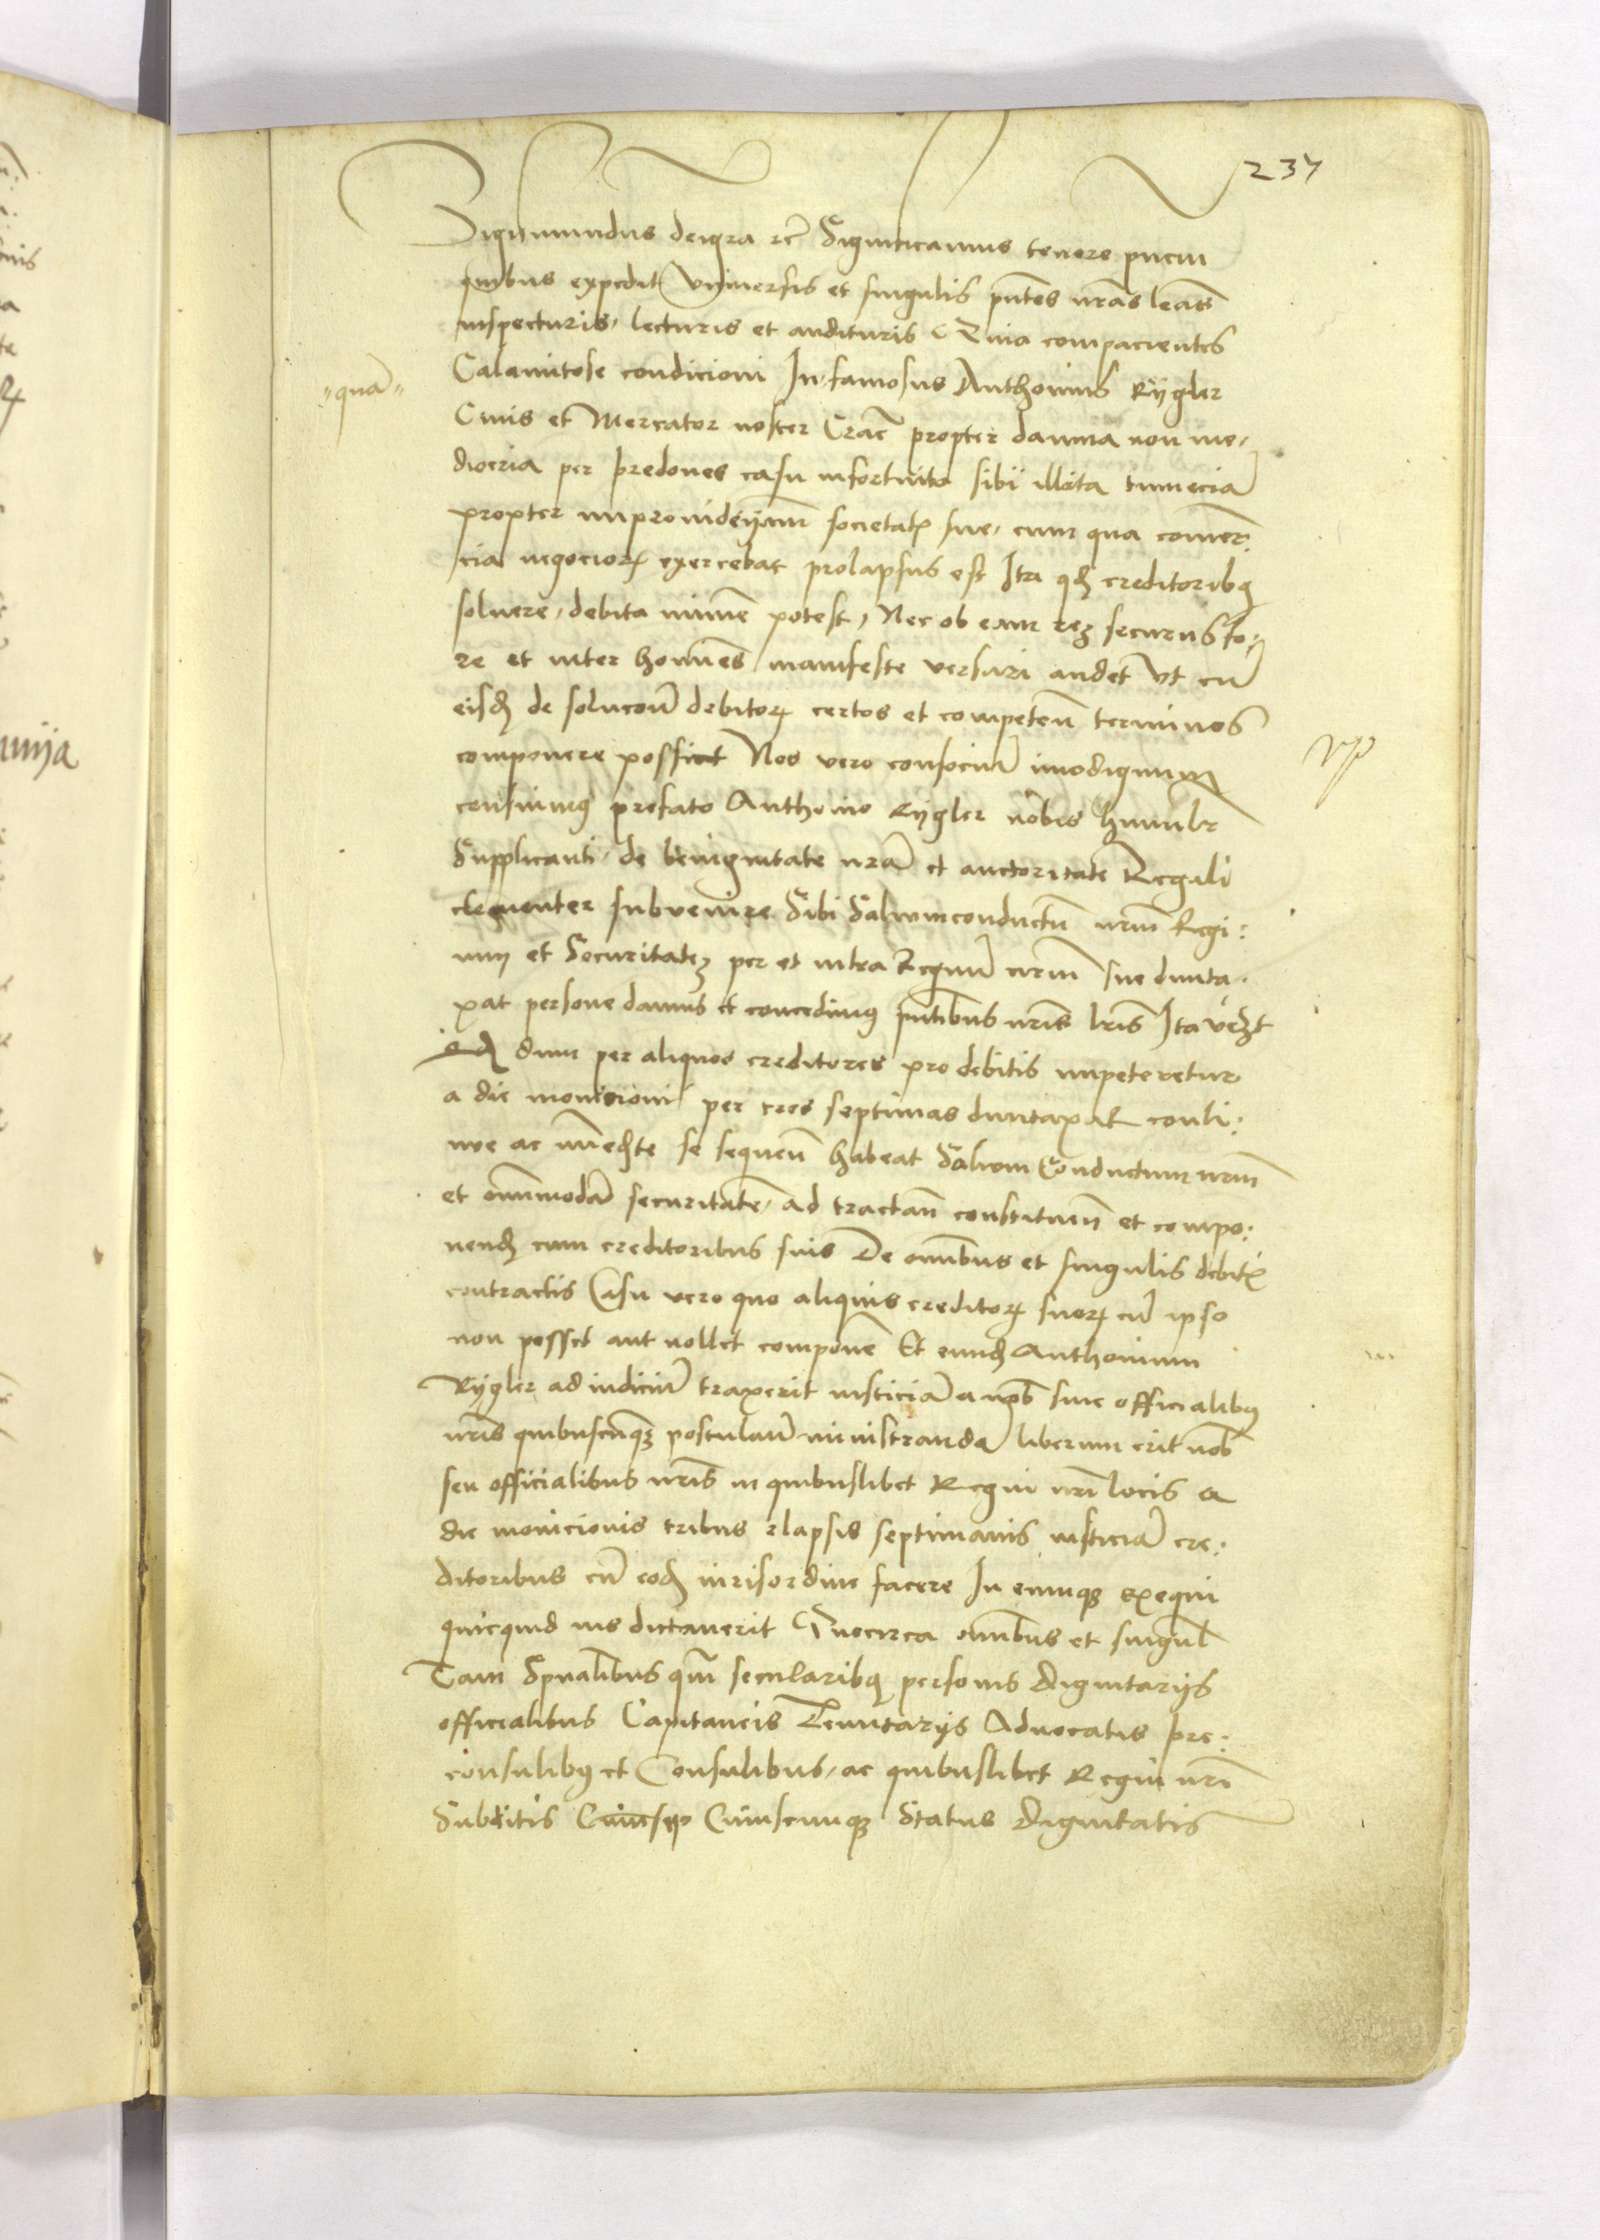 237
Sigismundus dei gra etc Significamus tenore pncm
quibus expedit Universis et singulis pntes nras lras
inspecturis, lecturis et audituris Quia compacientes
Calamitose condicioni In famosus Anthonius Rÿgler
"quā"
Civis et Mercator noster Crac propter damna non me,
diocria per predones casu infortuito sibi illata tum eciā
propter improvidenciam societatis sue, cum qua comer:
cia negocioꝝ exercebat prolapsus est Ita qđ creditoribꝫ
solvere, debita minime potest, Nec ob eam reꝫ securus fo:
re et inter homines manifeste versari audet Ut cū
eisđ de solucōe debitoꝝ certos et competeñ terminos
componere possit Nos vero
censuimꝰ prefato Anthonio Rygler nobis humilr
Supplicanti, de benignitate nrā et auctoritate Regali
clementer subvenire Sibi Salvumconductū nrm Regi:
um et Securitateꝫ per et intra Regnū nrm sue dunta.
xat persone damus et concedimꝰ pntibus nris lris Ita
dum per aliquos creditores pro debitis impeteretur
a die monicioni per tres septimas duntaxat conti:
nue ac se sequeñ habeat Salvum Conductum nrm
et omnimodā securitatē, ad tractañ constitueñ et compo:
nenđ cum creditoribus suis De omnibus et singulis debitis
contractis Casu vero quo aliquis creditoꝝ suoꝝ cū ipso
non posset aut nollet componere Et eunđ Anthonium
Rÿgler ad iudiciū traxerit iusticiā a nob sive officialibꝰ
nris quibuscūqꝫ postulaũ ministrandā liberum erit nob
seu officialibus nris in quibuslibet Regni nri locis a
die monicionis tribus elapsis septimanis iusticiā cre:
ditoribus cū eođ iurisordine facere In eumqꝫ exequi
quicquid ius dictaverit Quocirca omnibus et singul
Tam Spualibus qm secularibꝫ personis dignitarÿs
officialibus Capitaneis Tenutarÿs Advocatis pre:
consulibꝫ et Consulibus, ac quibuslibet Regni nri
Subditis Cuiuscunqꝫ Status dignitatis